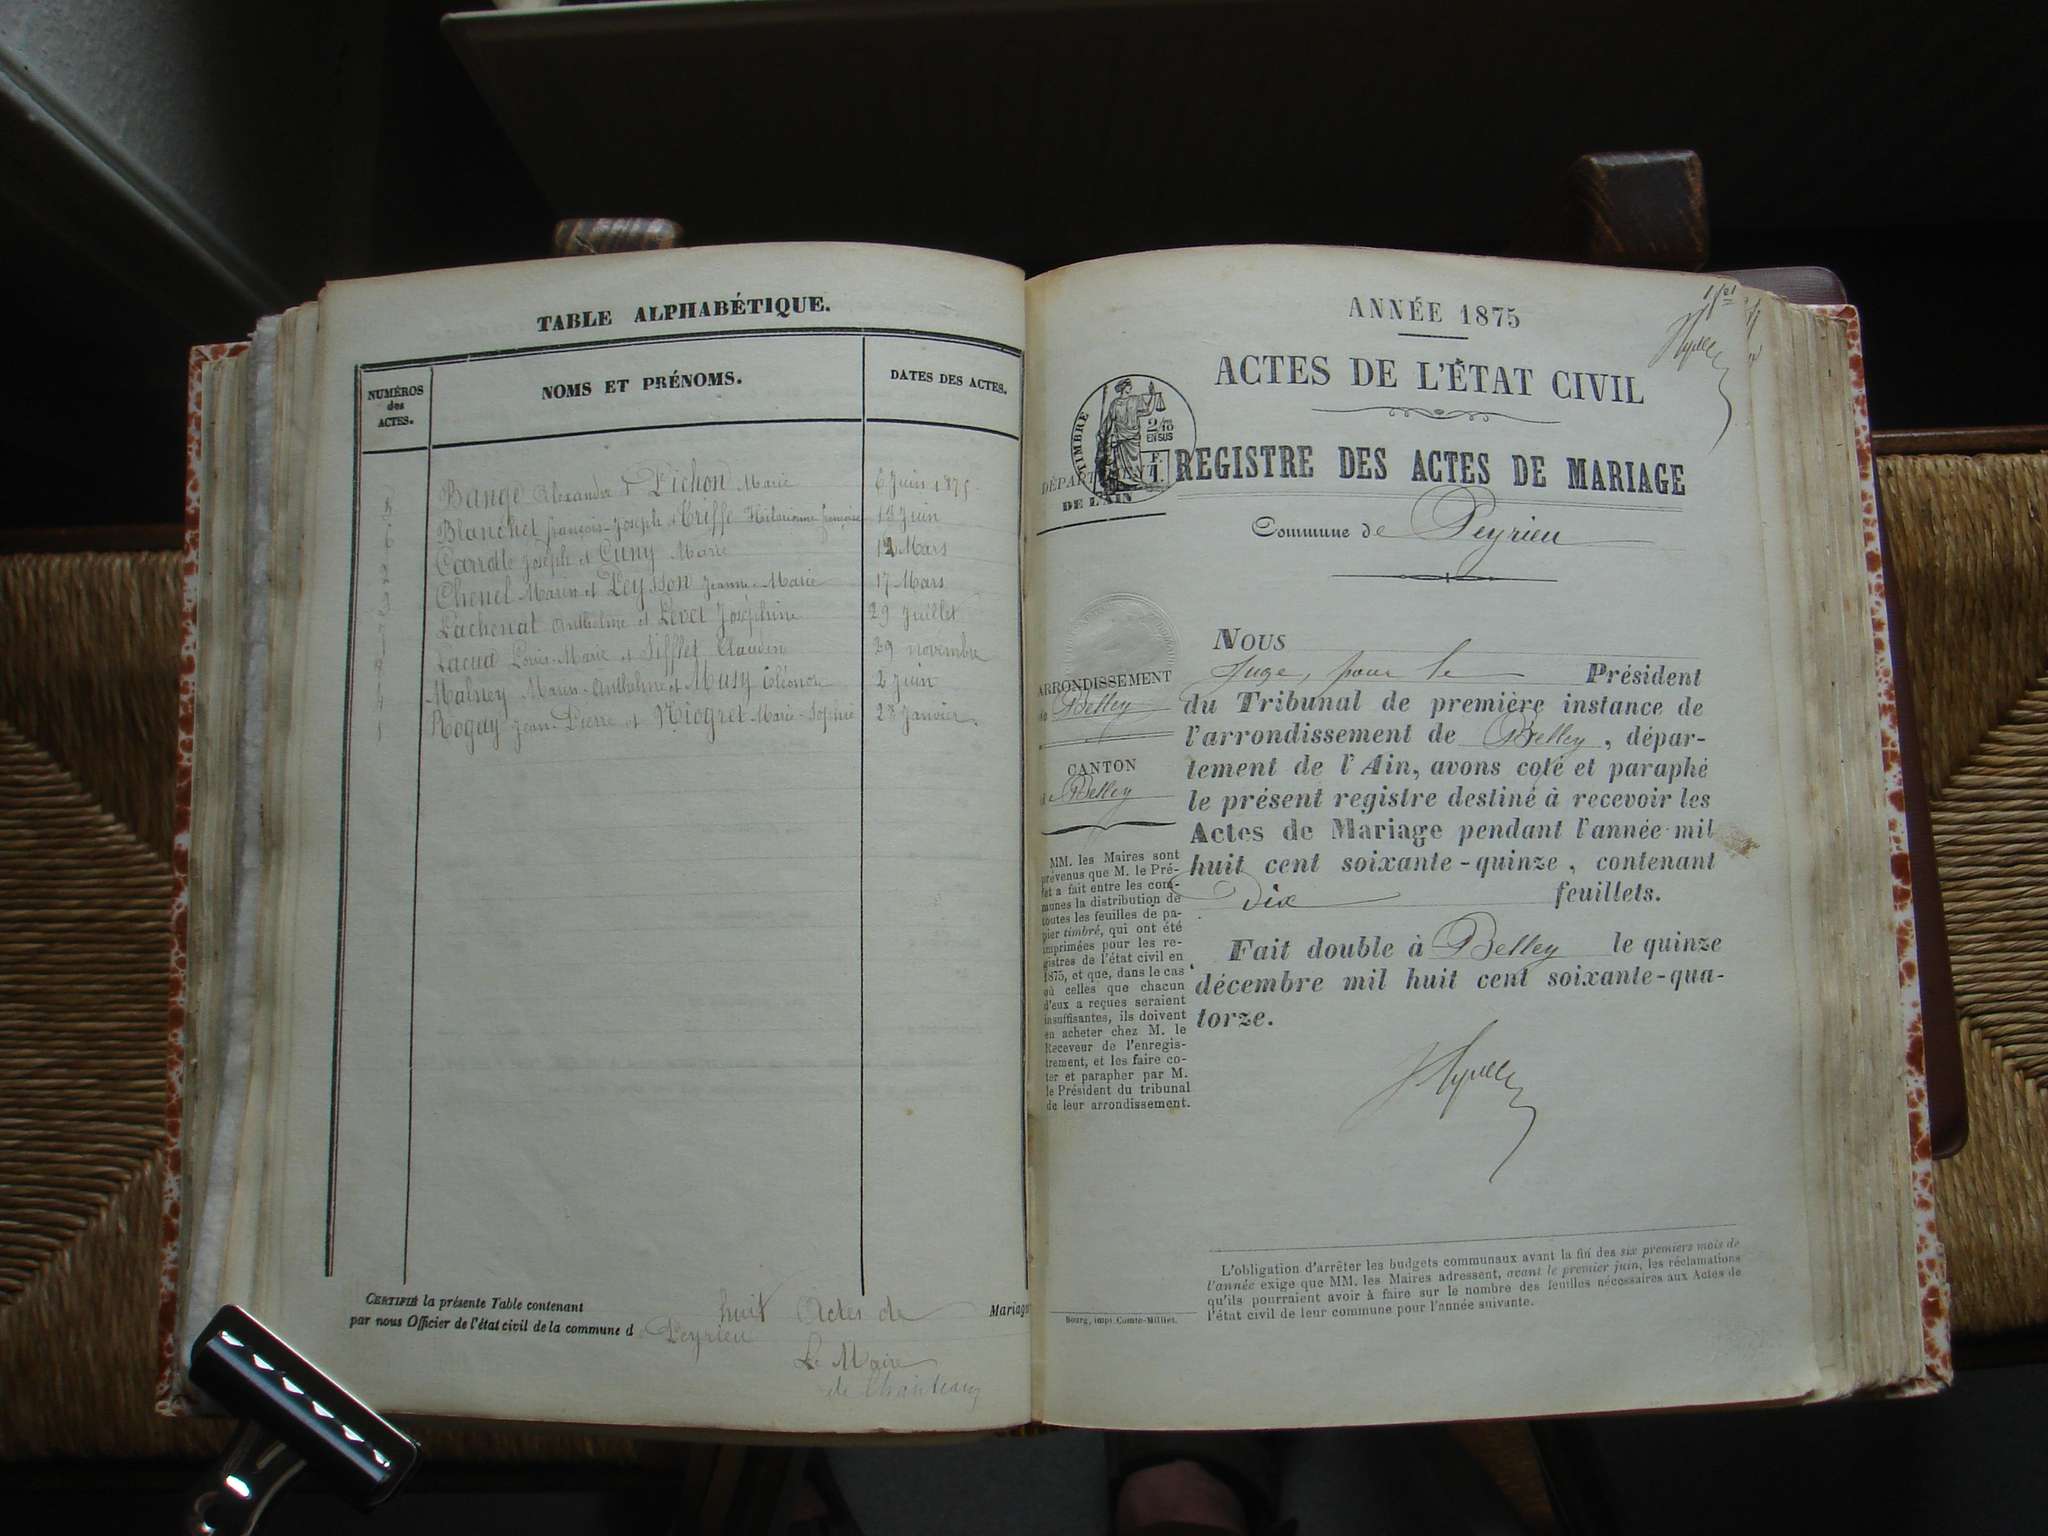 TABLE ALPHABÉTIQUE.
NUMÉROS
des
ACTES.
NOMS ET PRÉNOMS.
DATES DES ACTES.
5 Bange Alexandre et Pichon Marie 6 Juin 1875
6 Blanchet françois-Joseph et Griffe Hilarionne françoise 13 Juin
2 Carrotte Joseph et Cuny Marie 12 Mars
3 Chenel Marin et Peysson Jeanne-Marie 17 Mars
7 Lachenat Anthelme et Levet Joséphine 29 Juillet
Lacua Louis-Marie et Sifflet Claudin 29 novembre
4 Malney Marin-Anthelme et Musy Eléonore 2 Juin
1 Rogay Jean-Pierre et Niogret Marie-Sophie 28 Janvier.
CERTIFIÉ la présente Table contenant huit Actes de Mariage
par nous Officier de l'état civil de la commune d Peyrieu
Le Maire
ANNÉE 1875
1er
ACTES DE L'ÉTAT CIVIL
TIMBRE
2/10
EN SUS
F.
1.
REGISTRE DES ACTES DE MARIAGE
DÉPART
DE L'AIN
Commune de Peyrieu
ARRONDISSEMENT
de Belley
CANTON
de Belley
MM. les Maires sont
prévenus que M. le Pré-
fet a fait entre les com-
munes la distribution de
toutes les feuilles de pa-
pier timbré, qui ont été
imprimées pour les re-
gistres de l'état civil en
1875, et que, dans le cas
où celles que chacun
d'eux a reçues seraient
insuffisantes, ils doivent
en acheter chez M. le
Receveur de l'enregis-
trement, et les faire co-
ter et parapher par M.
le Président du tribunal
de leur arrondissement.
NOUS
Juge, pour le Président
du Tribunal de première instance de
l'arrondissement de Belley, dépar-
tement de l'Ain, avons coté et paraphé
le présent registre destiné à recevoir les
Actes de Mariage pendant l'année mil
huit cent soixante-quinze, contenant
Dix feuillets.
Fait double à Belley le quinze
décembre mil huit cent soixante-qua-
torze.
L'obligation d'arrêter les budgets communaux avant la fin des six premiers mois de
l'année exige que MM. les Maires adressent, avant le premier juin, les réclamations
qu'ils pourraient avoir à faire sur le nombre des feuilles nécessaires aux Actes de
l'état civil de leur commune pour l'année suivante.
Bourg, impr. Comte-Milliet.